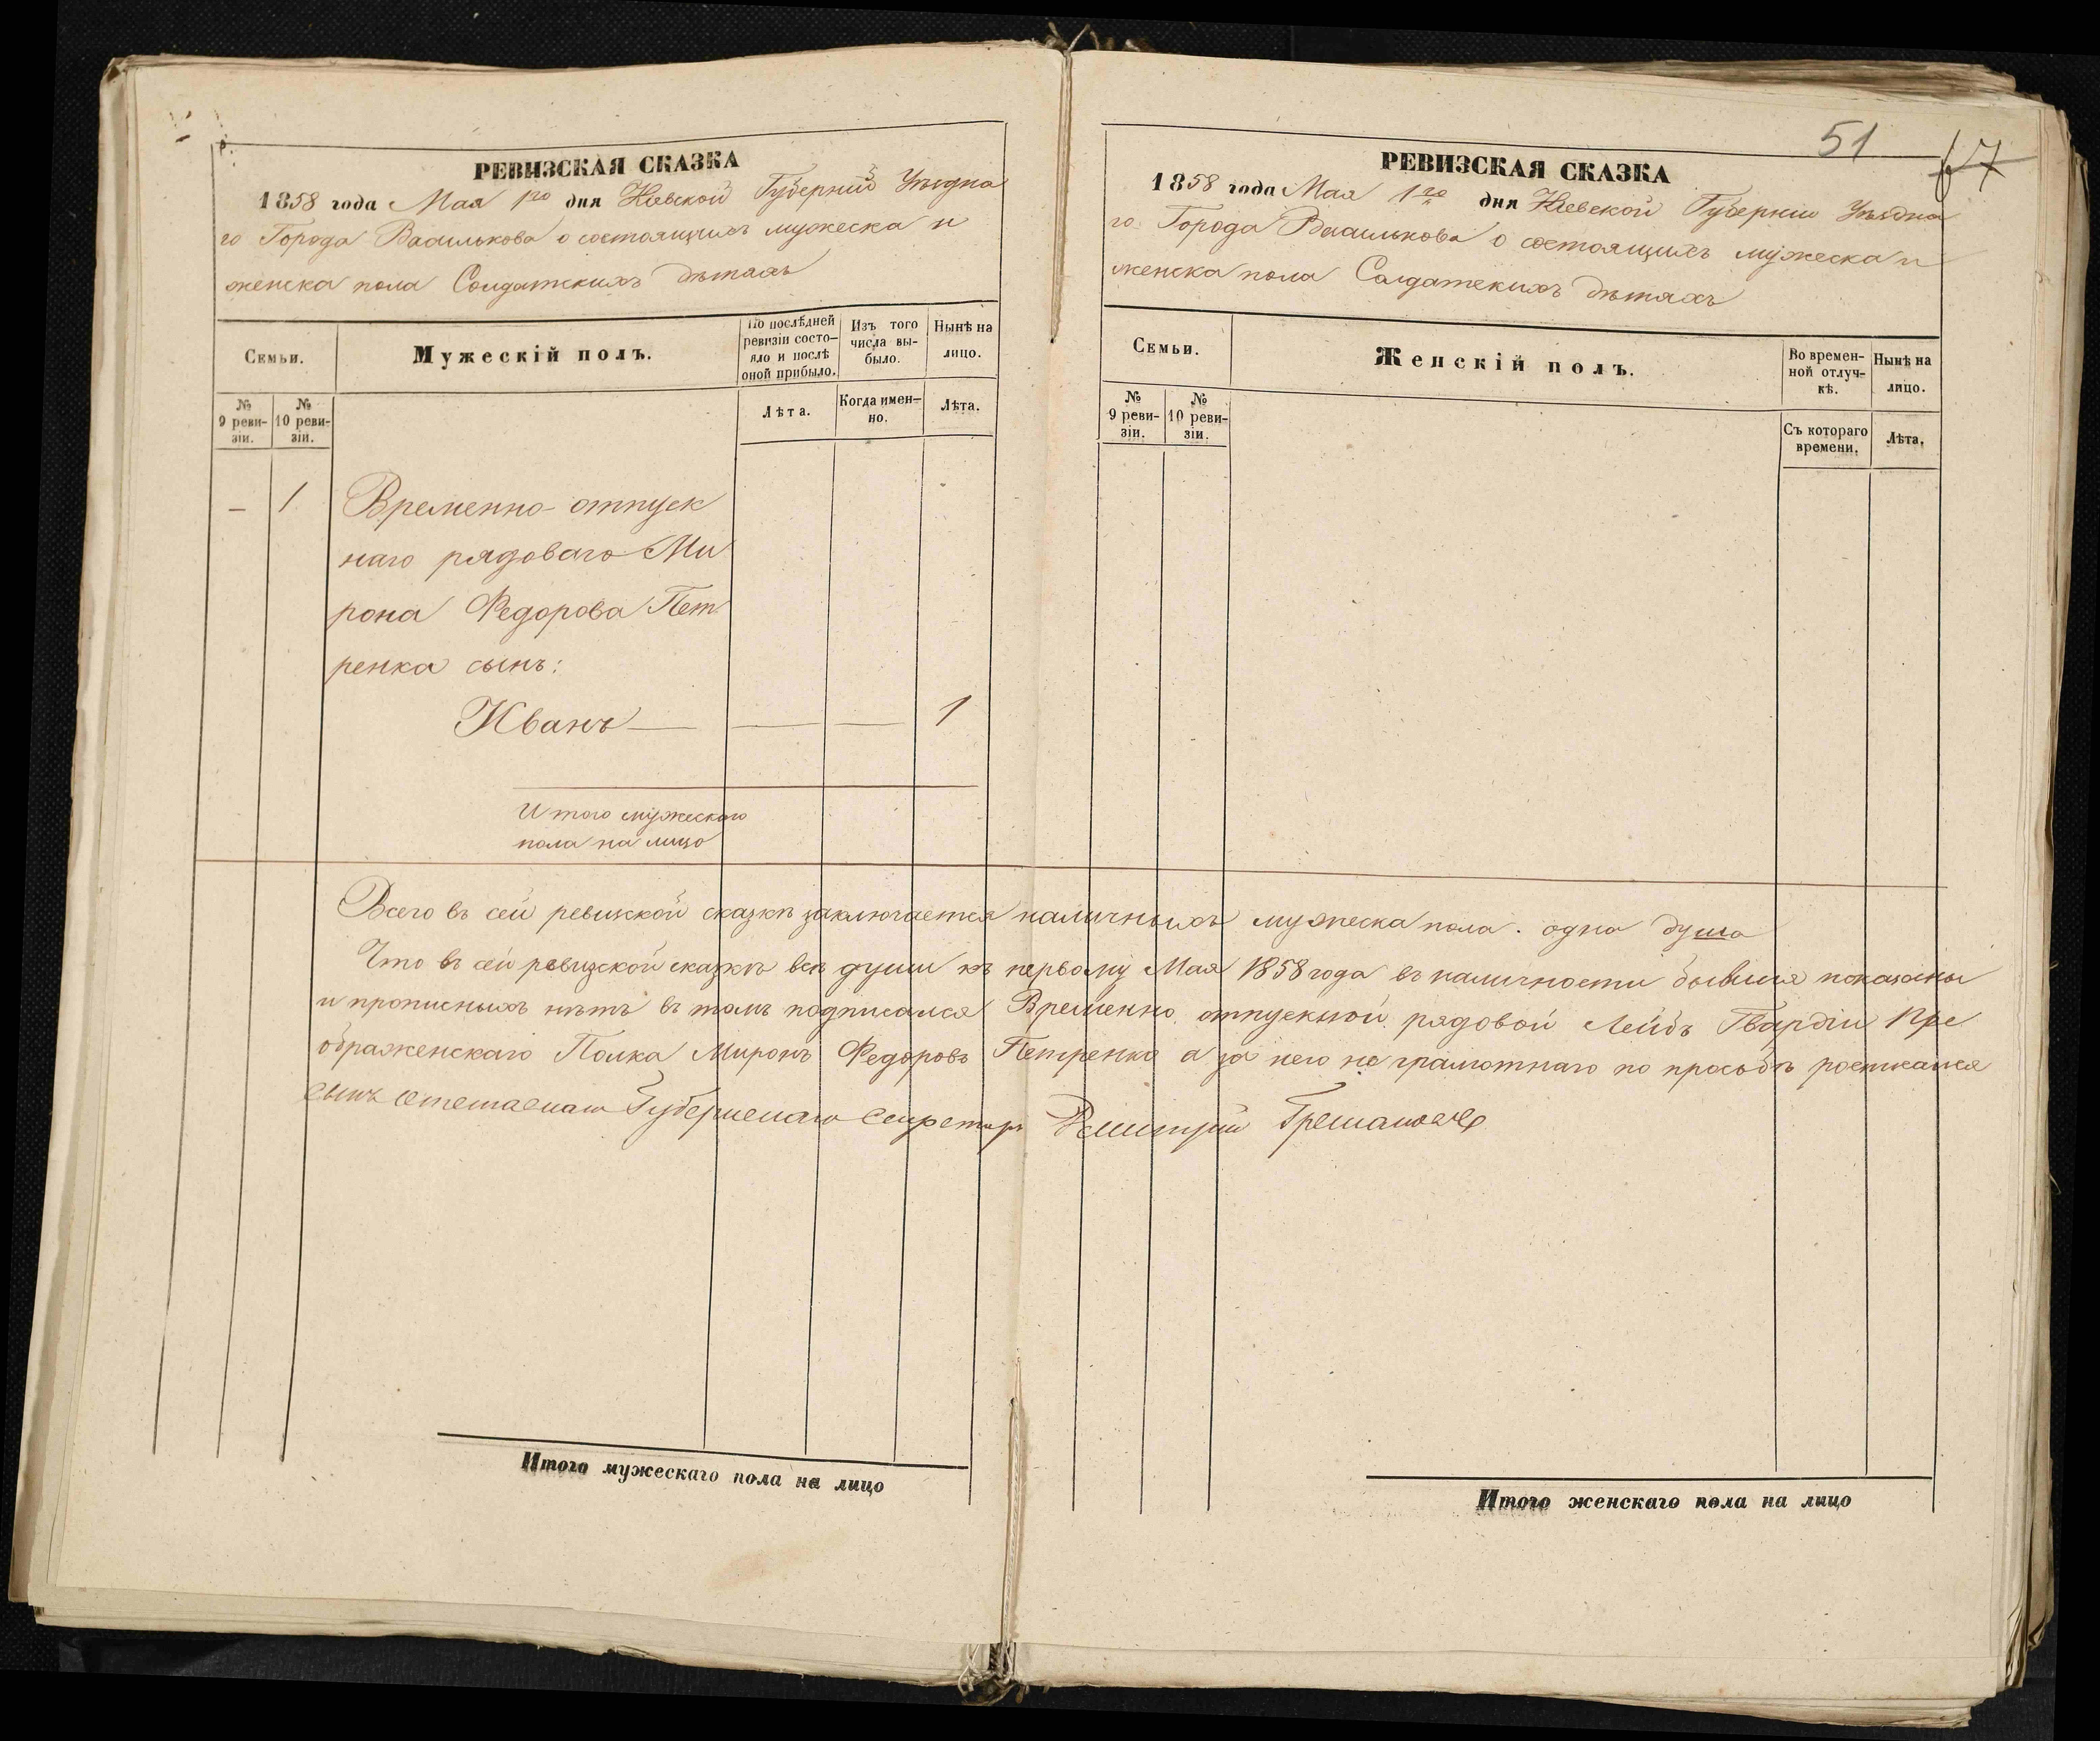 РЕВИЗСКАЯ СКАЗКА
1858 года Мая 1го дня Кіевской Губерніи Уѣздна
го Города Василькова о состоящихъ мужеска и
женска пола Солдатскихъ дѣтяхъ
Семьи.
Мужескій полъ.
По послѣдней
ревизіи состо-
яло и послѣ
оной прибыло.
Изъ того
числа вы-
было.
Нынѣ на
лицо.
№
9 реви-
зіи.
№
10 реви-
зіи.
Лѣта.
Когда имен-
но.
Лѣта.
— 1 Временно-отпуск
наго рядоваго Ми
рона Федорова Пет
ренка сынъ:
Иванъ — — — 1
Итого мужескаго
пола на лицо
51 67
РЕВИЗСКАЯ СКАЗКА
1858 года Мая 1го дня Кіевской Губерніи Уѣздна
го Города Василькова о состоящихъ мужеска и
женска пола Солдатскихъ дѣтяхъ
Семьи.
Женскій полъ.
Во времен-
ной отлуч-
кѣ.
Нынѣ на
лицо.
№
9 реви-
зіи.
№
10 реви-
зіи.
Съ котораго
времени.
Лѣта.
Всего въ сей ревизкой сказкѣ заключается наличныхъ мужеска пола. одна душа
Что въ сей ревизской сказкѣ всѣ души къ первому Мая 1858 года въ наличности бывшія показаны
и прописныхъ нѣтъ въ томъ подписался Временно отпускной рядовой Лейбъ Гвардіи Пре
ображенскаго Полка Миронъ Федоровъ Петренко а за него не грамотнаго по просьбѣ
сынъ Губернскаго Секретаря Дмитрій
Итого мужескаго пола на лицо
Итого женскаго пола на лицо